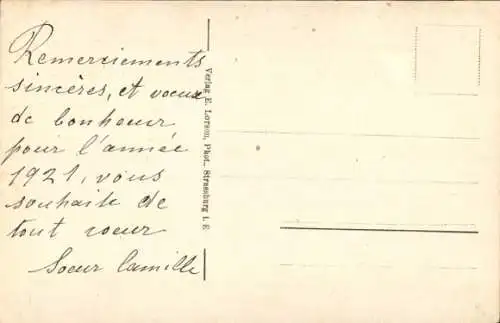 Remerciements
sincères, et voeux
de bonheur
pour l'année
1921, vous
souhaite de
tout coeur
Soeur Camille
Verlag E. Lorson, Phot., Strassburg i. E